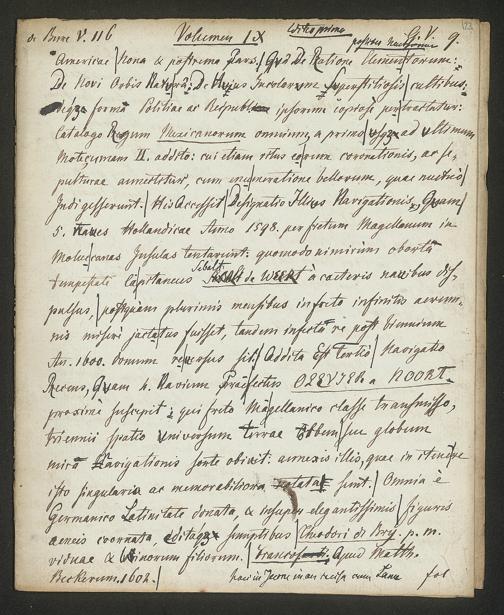 de Bure V. 116 Volumen IX Editio prima G. V. 9.
Americae | Nona & postrema Pars. | Qua De Ratione Elementorum:
De Novi Orbis Natura: De Hujus Incolarum Superstitiosis | cultibus:
deq3 forma Politiae ac Reipubl. ipsorum copiose pertractatur:
Catalogo Regum Mexicanorum omnium, a primo | usq3 ad ultimum
Motecumam II. addito: cui etiam ritus eorum coronationis, ac se-
pulturae annectitur, cum enumeratione bellorum, quae mutuo |
Indi gesserunt. | His Accessit | Designatio Illius Navigationis, Quam |
5. Naves Hollandicae Anno 1598. per fretum Magellanum in
Moluccanas Insulas tentarunt: quomodo nimirum oborta
tempestate Capitaneus Sebalt de WEERT a caeteris navibus dis-
pulsus, | postquam plurimis mensibus in freto infinitis aerum-
nis misere jactatus fuisset, tandem infecta re post biennium
An. 1600. domum reversus sit. | Addita Est Tertio | Navigatio
Recens, Quam 4. Navium Praefectus OLEVIER a NOORT
proxime suscepit: qui freto Magellanico classe transmisso,
triennii spatio universum terrae Orbem seu globum
mira Navigationis sorte obivit: annexis illis, quae in itinere
isto singularia ac memorabiliora notata sunt. | Omnia e
Germanico Latinitate donata, & insuper elegantissimis | figuris
aeneis coornata, editaq3 sumptibus | Theodori di Bry. p. m.
viduae & binorum filiorum. | Francof. Apud Matth.
Beckerum. 1602. | fol